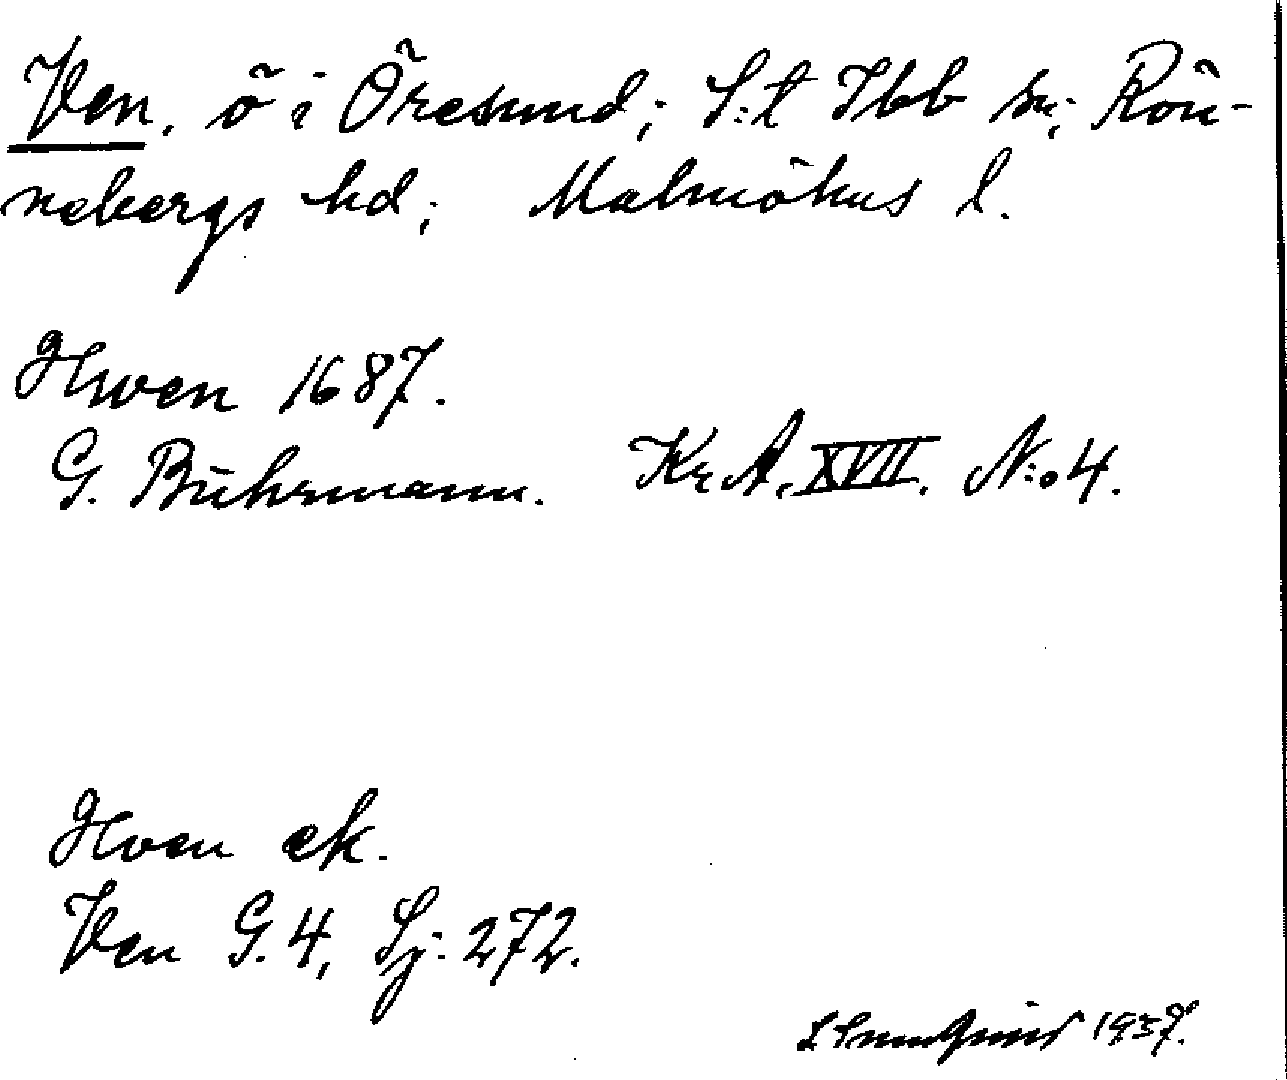 Ven, ö i Öresund; S:t Ibb sn; Rön-
nebergs hd; Malmöhus l.
Hwen 1687.
G. Buhrmann. Kr.A. XVII. N:o 4.
Hven ek.
Ven G. 4, Sj. 272.
1937.